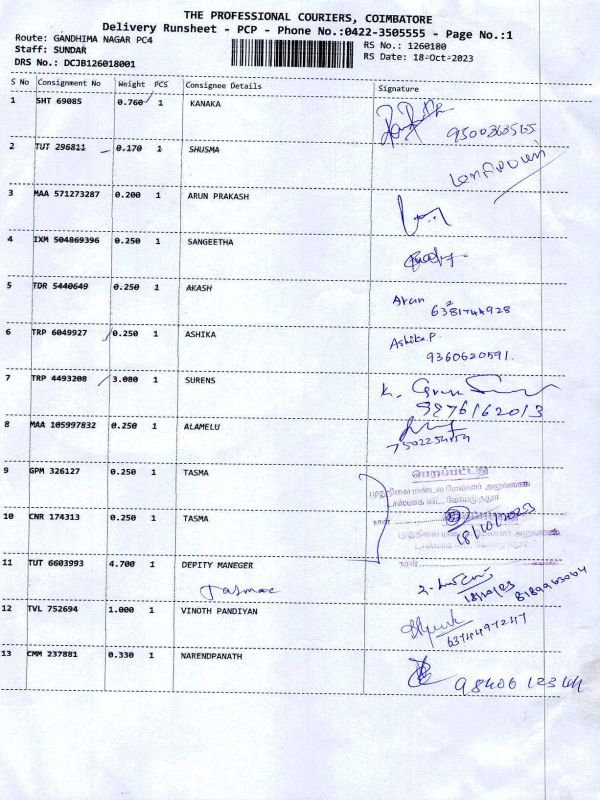 THE PROFESSIONAL COURIERS, COIMBATORE
Delivery Runsheet - PCP - Phone No.:0422-3505555 - Page No.:1
Route: GANDHIMA NAGAR PC4
RS No.: 1260180
Staff: SUNDAR
RS Date: 18-Oct-2023
DRS No.: DCJB126018001
S No Consignment No Weight PCS Consignee Details Signature
1 SHT 69085 0.760 1 KANAKA
2 TUT 296811 0.170 1 SHUSMA
3 MAA 571273287 0.200 1 ARUN PRAKASH
4 IXM 504869396 0.250 1 SANGEETHA
5 TDR 5440649 0.250 1 AKASH Arun
6381744928
6 TRP 6049927 0.250 1 ASHIKA Ashika.P
9360620591.
7 TRP 4493208 3.080 1 SURENS K.
9976162013
8 MAA 105997832 0.250 1 ALAMELU
7502254154
9 GPM 326127 0.250 1 TASMA
பெறப்பட்டது
முதுநிலை மண்டல மேலாளர் அலுவலகம்
டாஸ்மாக் லிட்., கோயமுத்தூர்
10 CNR 174313 0.250 1 TASMA
நாள்
18/10/2023
முதுநிலை மண்டல மேலாளர் அலுவலகம்
டாஸ்மாக் லிட்., கோயமுத்தூர்
நாள்
11 TUT 6603993 4.700 1 DEPITY MANEGER
Tasmac
18/10/23
8189963064
12 TVL 752694 1.000 1 VINOTH PANDIYAN
6374497247
13 CMM 237881 0.330 1 NARENDPANATH
9840612344